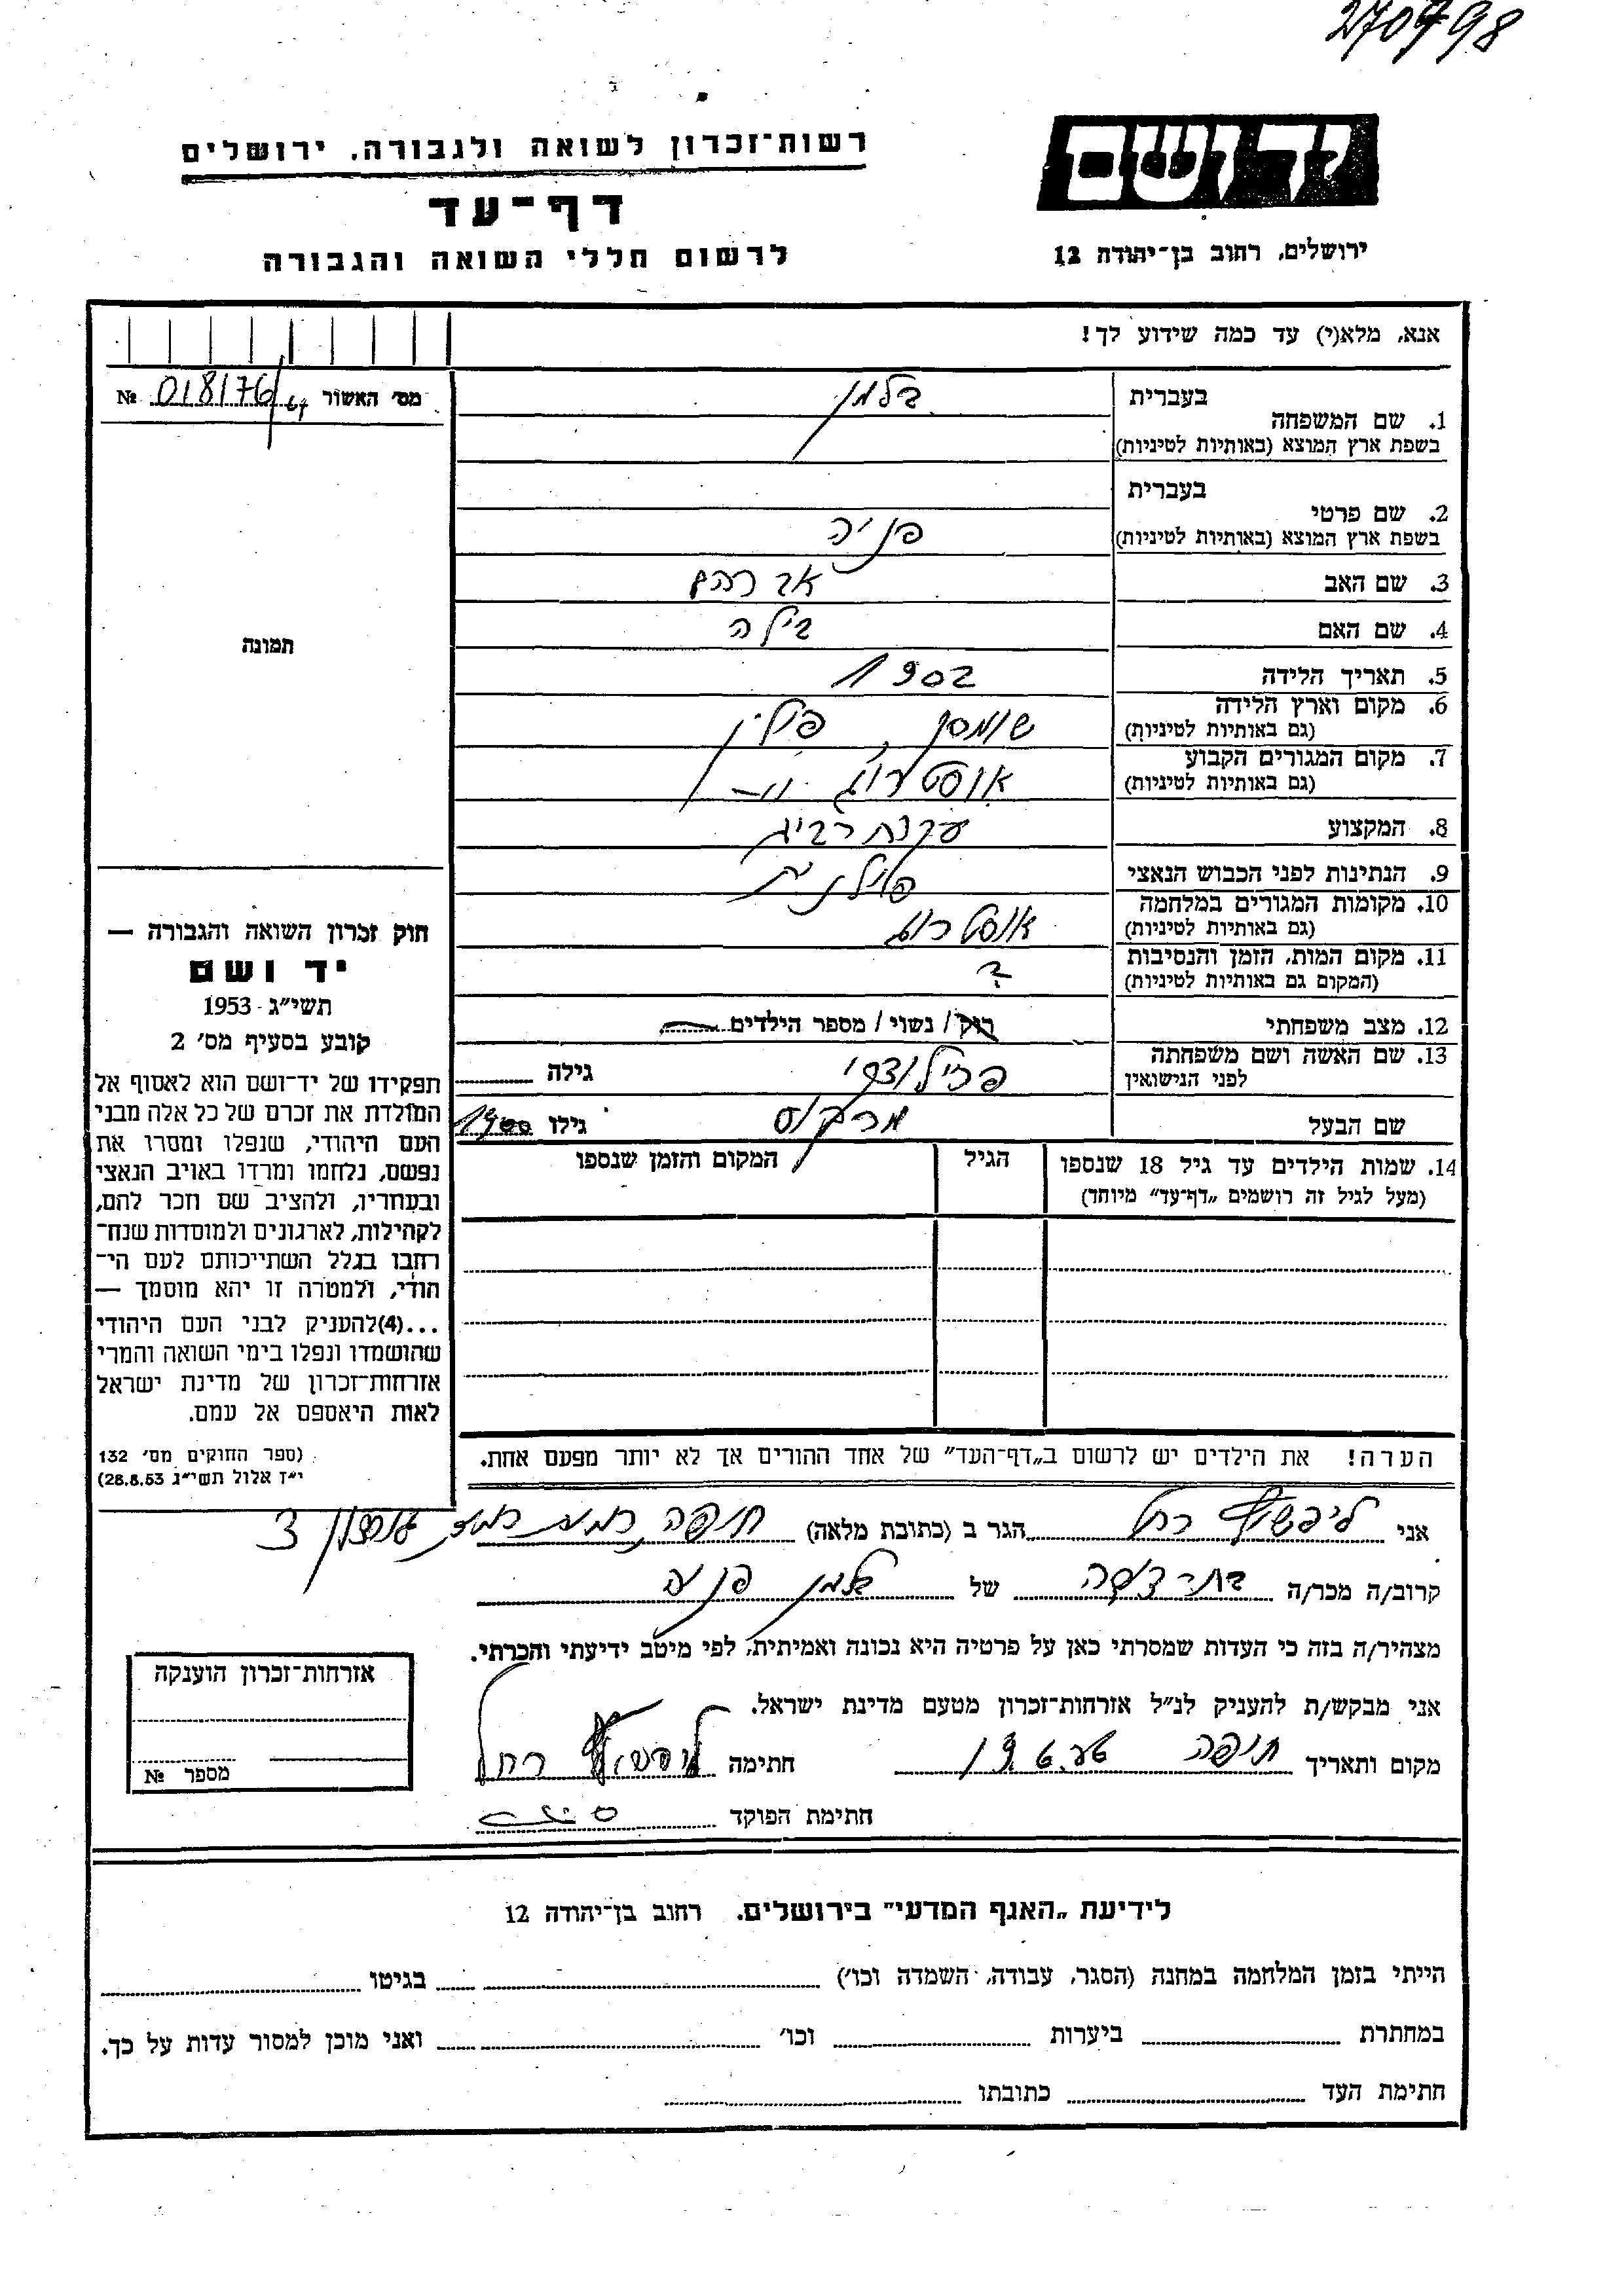 270798
יד ושם
רשות־זכרון לשואה ולגבורה, ירושלים
דף־עד
לרשום חללי השואה והגבורה
ירושלים, רחוב בן־יהודה 12
אנא, מלא(י) עד כמה שידוע לך!
מס׳ האשור 018176/67 №
בעברית
1. שם המשפחה
בשפת ארץ המוצא (באותיות לטיניות)
בלמן
בעברית
2. שם פרטי
בשפת ארץ המוצא (באותיות לטיניות)
פניה
3. שם האב אברהם
4. שם האם בילה
5. תאריך הלידה 1902
6. מקום וארץ הלידה שומסק, פולין
(גם באותיות לטיניות)
7. מקום המגורים הקבוע אוסטרוג
(גם באותיות לטיניות)
8. המקצוע עקרת בית
9. הנתינות לפני הכבוש הנאצי פולנית
10. מקומות המגורים במלחמה אוסטרוג
(גם באותיות לטיניות)
11. מקום המות, הזמן והנסיבות ?
(המקום גם באותיות לטיניות)
12. מצב משפחתי רוק / נשוי / מספר הילדים
13. שם האשה ושם משפחתה
לפני הנישואין גילה
שם הבעל מרקוס גילו 1900
14. שמות הילדים עד גיל 18 שנספו הגיל המקום והזמן שנספו
(מעל לגיל זה רושמים „דף־עד״ מיוחד)
הערה! את הילדים יש לרשום ב„דף־העד״ של אחד ההורים אך לא יותר מפעם אחת.
תמונה
חוק זכרון השואה והגבורה —
יד ושם
תשי״ג - 1953
קובע בסעיף מס׳ 2
תפקידו של יד־ושם הוא לאסוף אל
המולדת את זכרם של כל אלה מבני
העם היהודי, שנפלו ומסרו את
נפשם, נלחמו ומרדו באויב הנאצי
ובעוזריו, ולהציב שם וזכר להם,
לקהילות, לארגונים ולמוסדות שנח־
רבו בגלל השתייכותם לעם הי־
הודי, ולמטרה זו יהא מוסמך —
...(4)להעניק לבני העם היהודי
שהושמדו ונפלו בימי השואה והמרי
אזרחות־זכרון של מדינת ישראל
לאות היאספם אל עמם.
(ספר החוקים מס׳ 132
י״ז אלול תשי״ג 28.8.53)
אני ליפשיץ רחל הגר ב (כתובת מלאה) חיפה
קרוב/ה מכר/ה בת דודה של בלמן פניה
מצהיר/ה בזה כי העדות שמסרתי כאן על פרטיה היא נכונה ואמיתית, לפי מיטב ידיעתי והכרתי.
אני מבקש/ת להעניק לנ״ל אזרחות־זכרון מטעם מדינת ישראל.
מקום ותאריך חיפה חתימה ליפשיץ רחל
חתימת הפוקד
אזרחות־זכרון הוענקה
מספר №
לידיעת „האגף המדעי״ בירושלים. רחוב בן־יהודה 12
הייתי בזמן המלחמה במחנה (הסגר, עבודה, השמדה וכו׳) בגיטו
במחתרת ביערות וכו׳ ואני מוכן למסור עדות על כך.
חתימת העד כתובתו